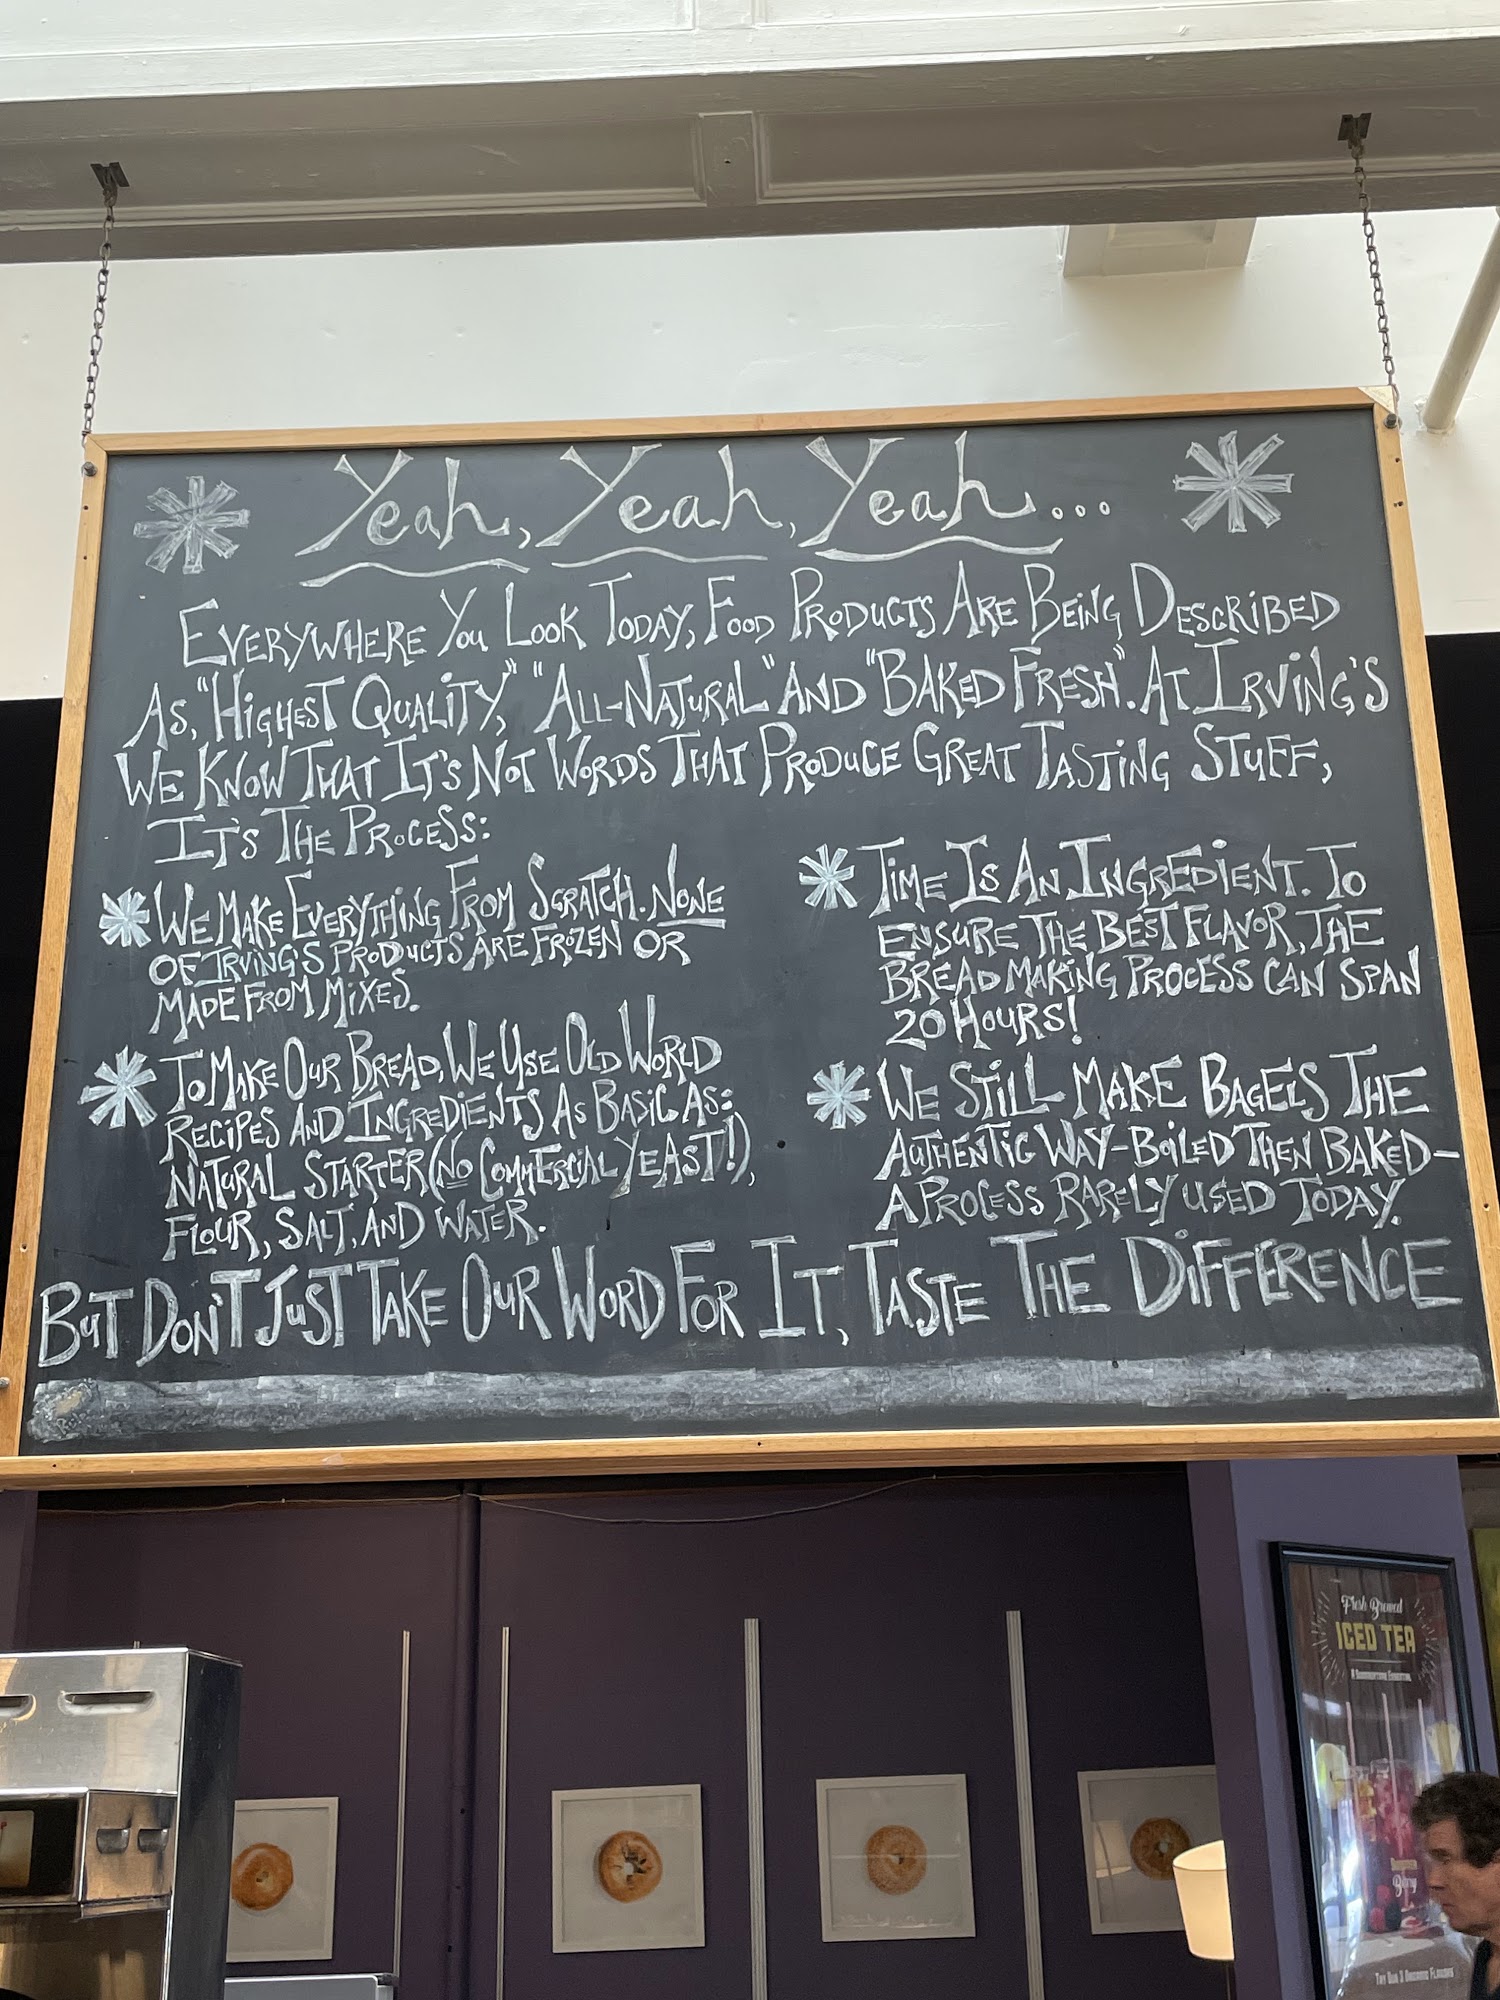 Yeah, Yeah, Yeah...
EVERYWHERE YOU LOOK TODAY, FOOD PRODUCTS ARE BEING DESCRIBED
AS, "HIGHEST QUALITY," "ALL-NATURAL" AND "BAKED FRESH". AT IRVING'S
WE KNOW THAT IT'S NOT WORDS THAT PRODUCE GREAT TASTING STUFF,
IT'S THE PROCESS:
WE MAKE EVERYTHING FROM SCRATCH. NONE
OF IRVING'S PRODUCTS ARE FROZEN OR
MADE FROM MIXES.
TO MAKE OUR BREAD, WE USE OLD WORLD
RECIPES AND INGREDIENTS AS BASIC AS:
NATURAL STARTER (NO COMMERCIAL YEAST!),
FLOUR, SALT, AND WATER.
TIME IS AN INGREDIENT. TO
ENSURE THE BEST FLAVOR, THE
BREAD MAKING PROCESS CAN SPAN
20 HOURS!
WE STILL MAKE BAGELS THE
AUTHENTIC WAY-BOILED THEN BAKED-
A PROCESS RARELY USED TODAY.
BUT DON'T JUST TAKE OUR WORD FOR IT, TASTE THE DIFFERENCE
Fresh Brewed
ICED TEA